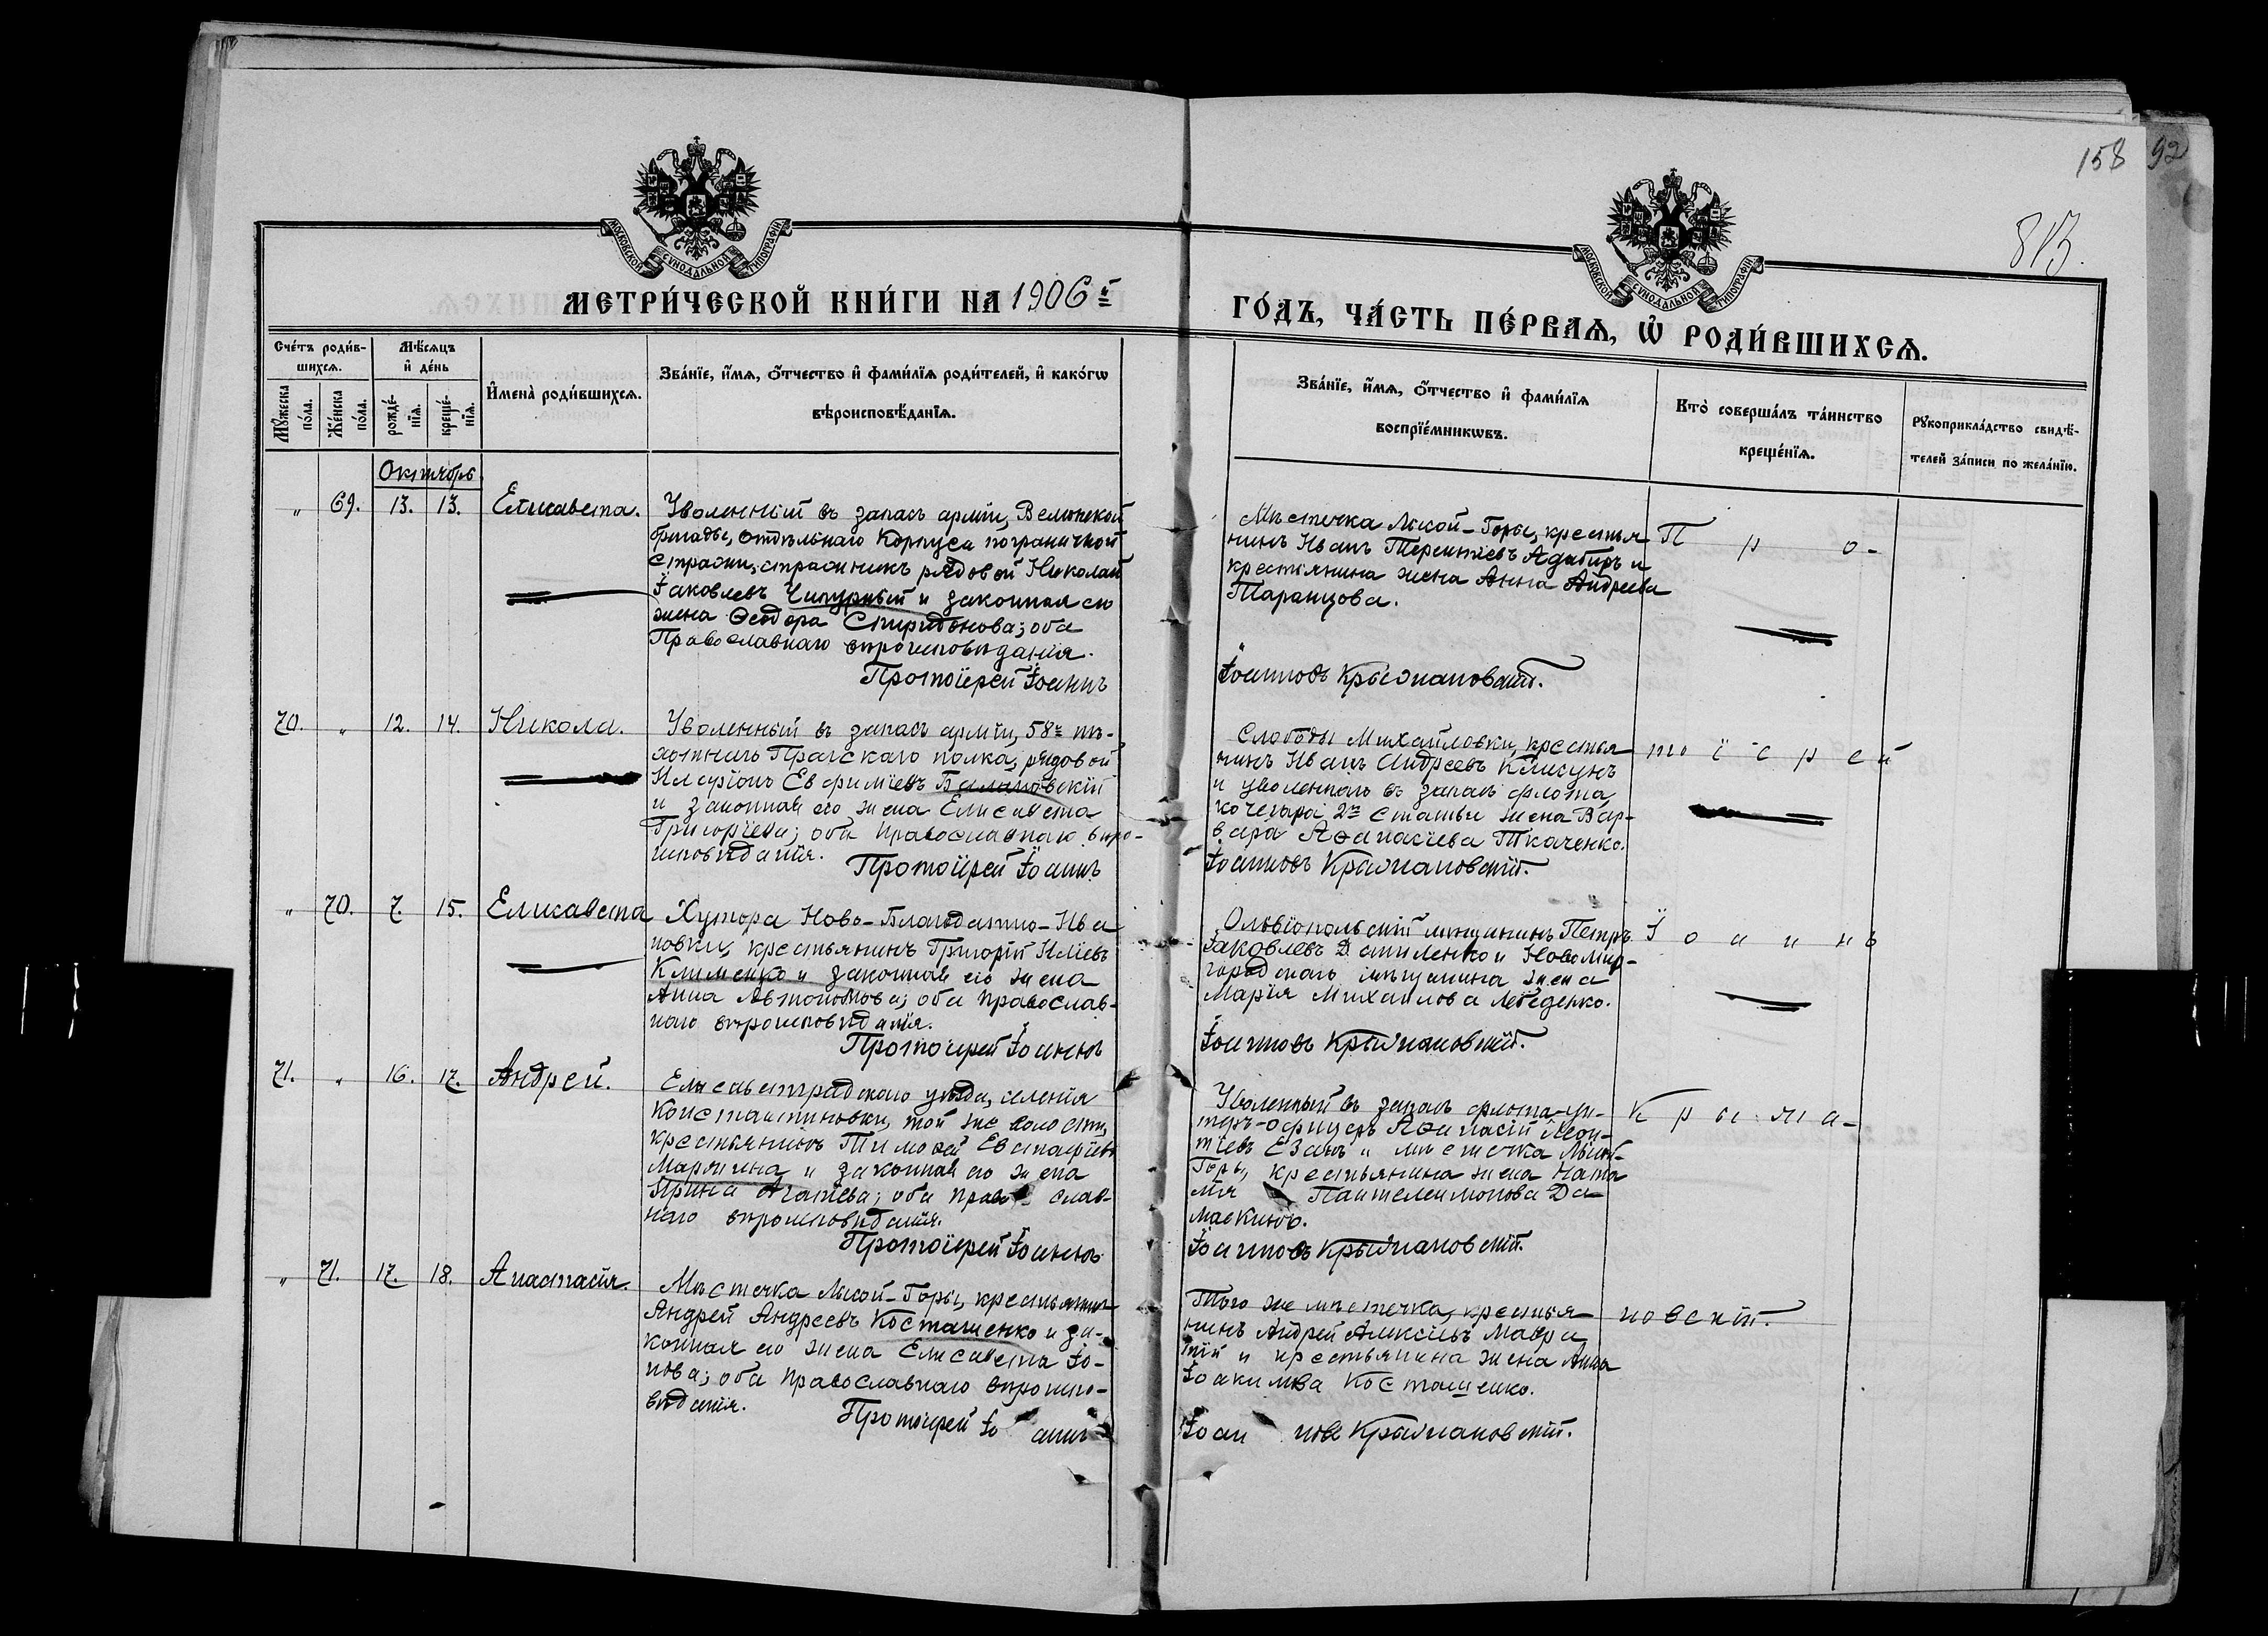 158 92
813.
МОСКОВСКОЙ СѴНОДАЛЬНОЙ ТИПОГРАФІИ
МОСКОВСКОЙ СѴНОДАЛЬНОЙ ТИПОГРАФІИ
МЕТРИ́ЧЕСКОЙ КНИ́ГИ НА 1906й
ГО́ДЪ, ЧА́СТЬ ПЕ́РВАѦ, Ѡ РОДИ́ВШИХСѦ.
Сче́тъ роди́в-
шихсѧ.
Мꙋжеска по́ла.
Же́нска по́ла.
Мѣ́сяцъ
и҆ де́нь
рожде́-
нїѧ.
креще́-
нїѧ.
И҆мена̀ роди́вшихсѧ.
Зва́нїе, и҆́мѧ, ѻ҆́тчество и҆ фами́лїѧ роди́телей, и҆ како́гѡ
вѣроисповѣ́данїѧ.
Зва́нїе, и҆́мѧ, ѻ҆́тчество и҆ фами́лїѧ
воспрїе́мникѡвъ.
Кто̀ соверша́лъ та́инство
креще́нїѧ.
Рꙋкоприкла́дство свидѣ́-
телей за́писи по жела́нїю.
Октябрь.
„ 69. 13. 13. Елисавета.
Уволенный въ запасъ арміи, Велюнской
бригады, отдѣльнаго Корпуса пограничной
Стражи, стражникъ рядовой Николай
Іаковлевъ Чипурный и законная его
жена Ѳеодора Спиридонова; оба
Православнаго вѣроисповѣданія.
Протоіерей Іоаннъ
Мѣстечка Лысой-Горы, крестья-
нинъ Иванъ Терентіевъ Адабиръ и
крестьянина жена Анна Андреева
Таранцова.
Іоанновъ Крыжановскій.
П р о-
70. „ 12. 14. Никола.
Уволенный въ запасъ арміи, 58го пѣ-
хотнаго Прагскаго полка, рядовой
Иларіонъ Евфиміевъ Балановскій
и законная его жена Елисавета
Григоріева; оба православнаго вѣро-
исповѣданія.
Протоіерей Іоаннъ
Слободы Михайловки, крестья-
нинъ Иванъ Андреевъ Клисунъ
и уволеннаго въ запасъ флота,
кочегара 2й статьи жена Вар-
вара Аѳанасіева Ткаченко.
Іоанновъ Крыжановскій.
то і е р е й
„ 70. 7. 15. Елисавета
Хутора Ново-Благодатно-Ива
новки, крестьянинъ Григорій Иліевъ
Клименко и законная его жена
Анна Автономова; оба православ-
наго вѣроисповѣданія.
Протоіерей Іоаннъ
Ольвіопольскій мѣщанинъ Петръ
Іаковлевъ Даниленко и Новомир-
городскаго мѣщанина жена
Марія Михаилова Лебеденко.
Іоанновъ Крыжановскій.
І о а н н ъ
71. „ 16. 17. Андрей.
Елисаветградскаго уѣзда, селенія
Константиновки, той же волости,
крестьянинъ Тимоѳей Евстафіевъ
Мартына и законная его жена
Ирина Агапіева; оба право слав-
наго вѣроисповѣданія.
Протоіерей Іоаннъ
Уволенный въ запасъ флота-ун-
теръ-офицеръ Аѳанасій Леон-
тіевъ и мѣстечка Лысой-
Горы, крестьянина жена Ната
лія Пантелеимонова Да-
маскинъ.
Іоанновъ Крыжановскій.
К р ы ж а-
„ 71. 17. 18. Анастасія.
Мѣстечка Лысой-Горы, крестьянинъ
Андрей Андреевъ Косташенко и за-
конная его жена Елисавета Іо-
нова; оба православнаго вѣроиспо-
вѣданія.
Протоіерей Іо аннъ
Того же мѣстечка, крестья-
нинъ Андрей Алексіевъ
и крестьянина жена Анна
Іоакимова Косташенко.
Іоан новъ Крыжановскій.
новскій.